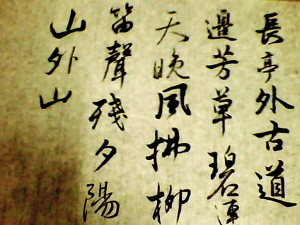 長亭外古道
邊芳草碧連
天晚風拂柳
笛聲殘夕陽
山外山